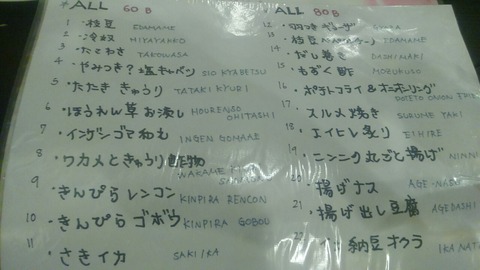 *ALL 60 B
1 ・枝豆 EDAMAME
2 ・冷奴 HIYAYAKKO
3 ・たこわさ TAKOWASA
4 ・やみつき?塩キャベツ SIO KYABETSU
5 ・たたききゅうり TATAKI KYURI
6 ・ほうれん草お浸し HOURENSO OHITASHI
7 ・インゲンゴマ和え INGEN GOMAAE
8 ・ワカメときゅうり酢物 WAKAME
9 ・きんぴらレンコン KINPIRA RENCON
10 ・きんぴらゴボウ KINPIRA GOBOU
11 ・さきイカ SAKI IKA
ALL 80 B
12 ギョーザ
13 ・枝豆 EDAMAME
14 ・だし巻き DASHIMAKI
15 ・もずく酢 MOZUKUSU
16 ・ポテトフライ&オニオンリング POTETO ONION FRIE
17 ・スルメ焼き SURUME YAKI
18 ・エイヒレ炙り EIHIRE
19 ・ニンニク丸ごと揚げ NINNI
20 ・揚げナス AGE NASU
21 ・揚げ出し豆腐 AGEDASHI
22 納豆オクラ IKA NAT